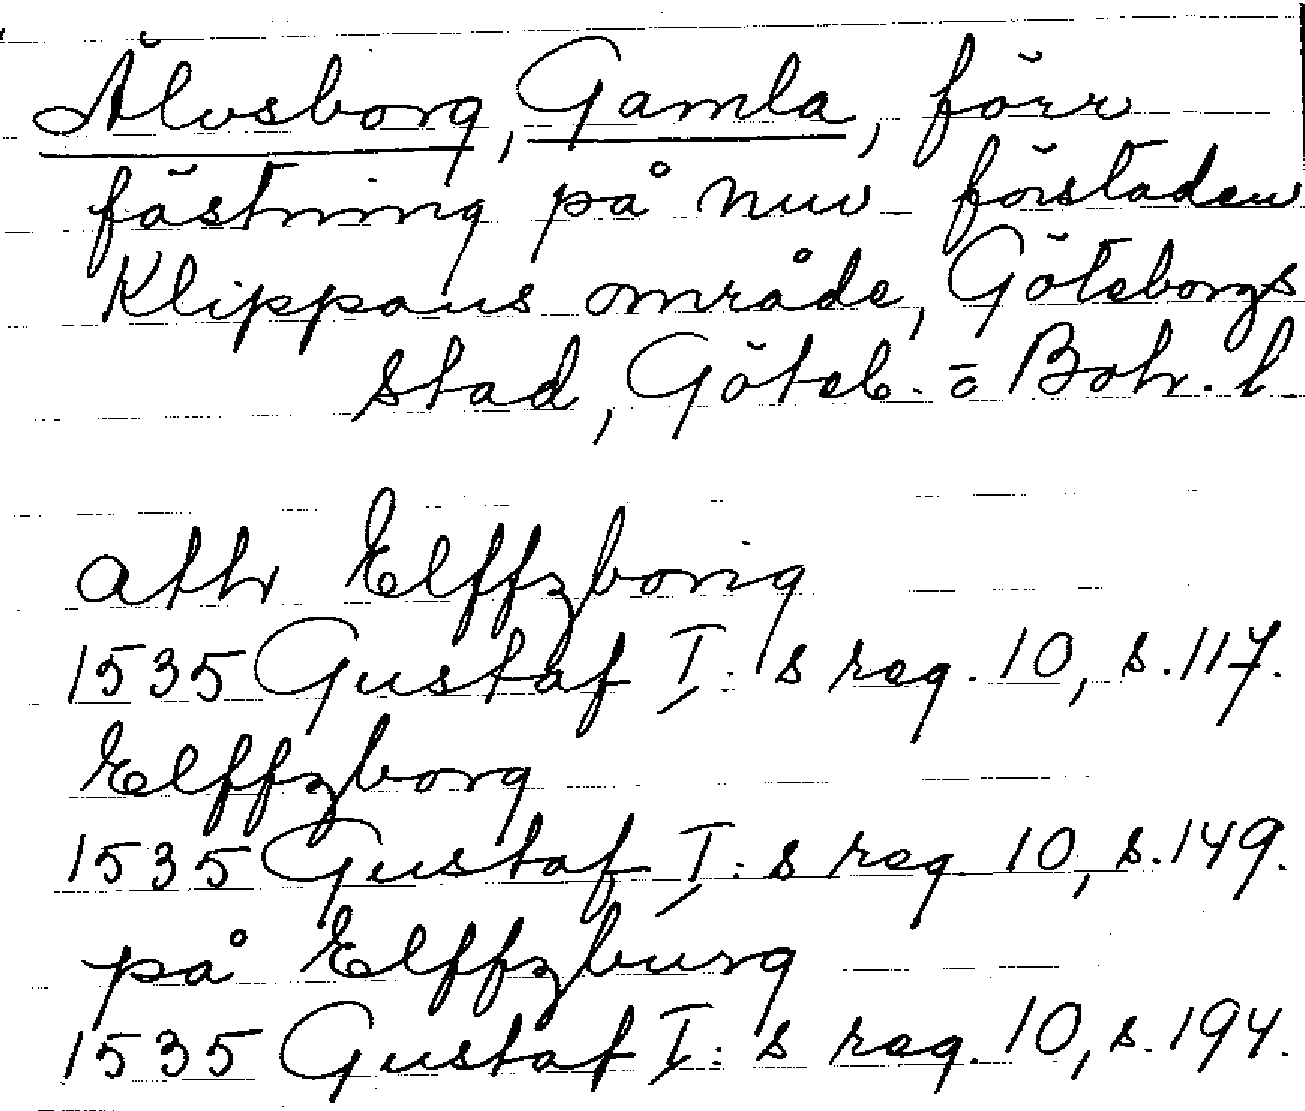 Älvsborg, Gamla, förr
fästning på nuv. förstaden
Klippans område, Göteborgs
stad, Göteb. o. Boh. l.
ath Elffzborig
1535 Gustaf I:s reg. 10, s. 117.
Elffzborg
1535 Gustaf I:s reg. 10, s. 149.
på Elffzburg
1535 Gustaf I:s reg. 10, s. 194.